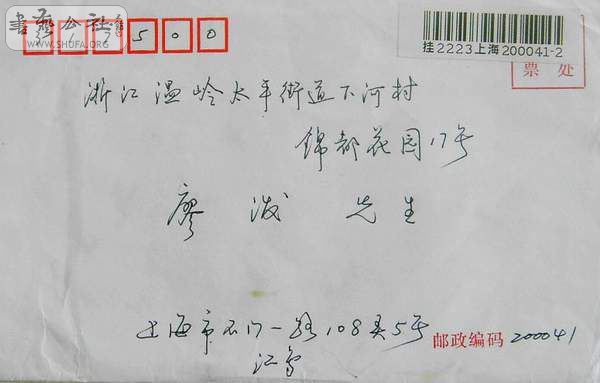 書藝公社
WWW.SHUFA.ORG
500
挂2223上海200041-2
票处
浙江温岭太平街道下河村
錦都花园17号
廖 先生
上海市石门一路108弄5号 邮政编码 200041
江